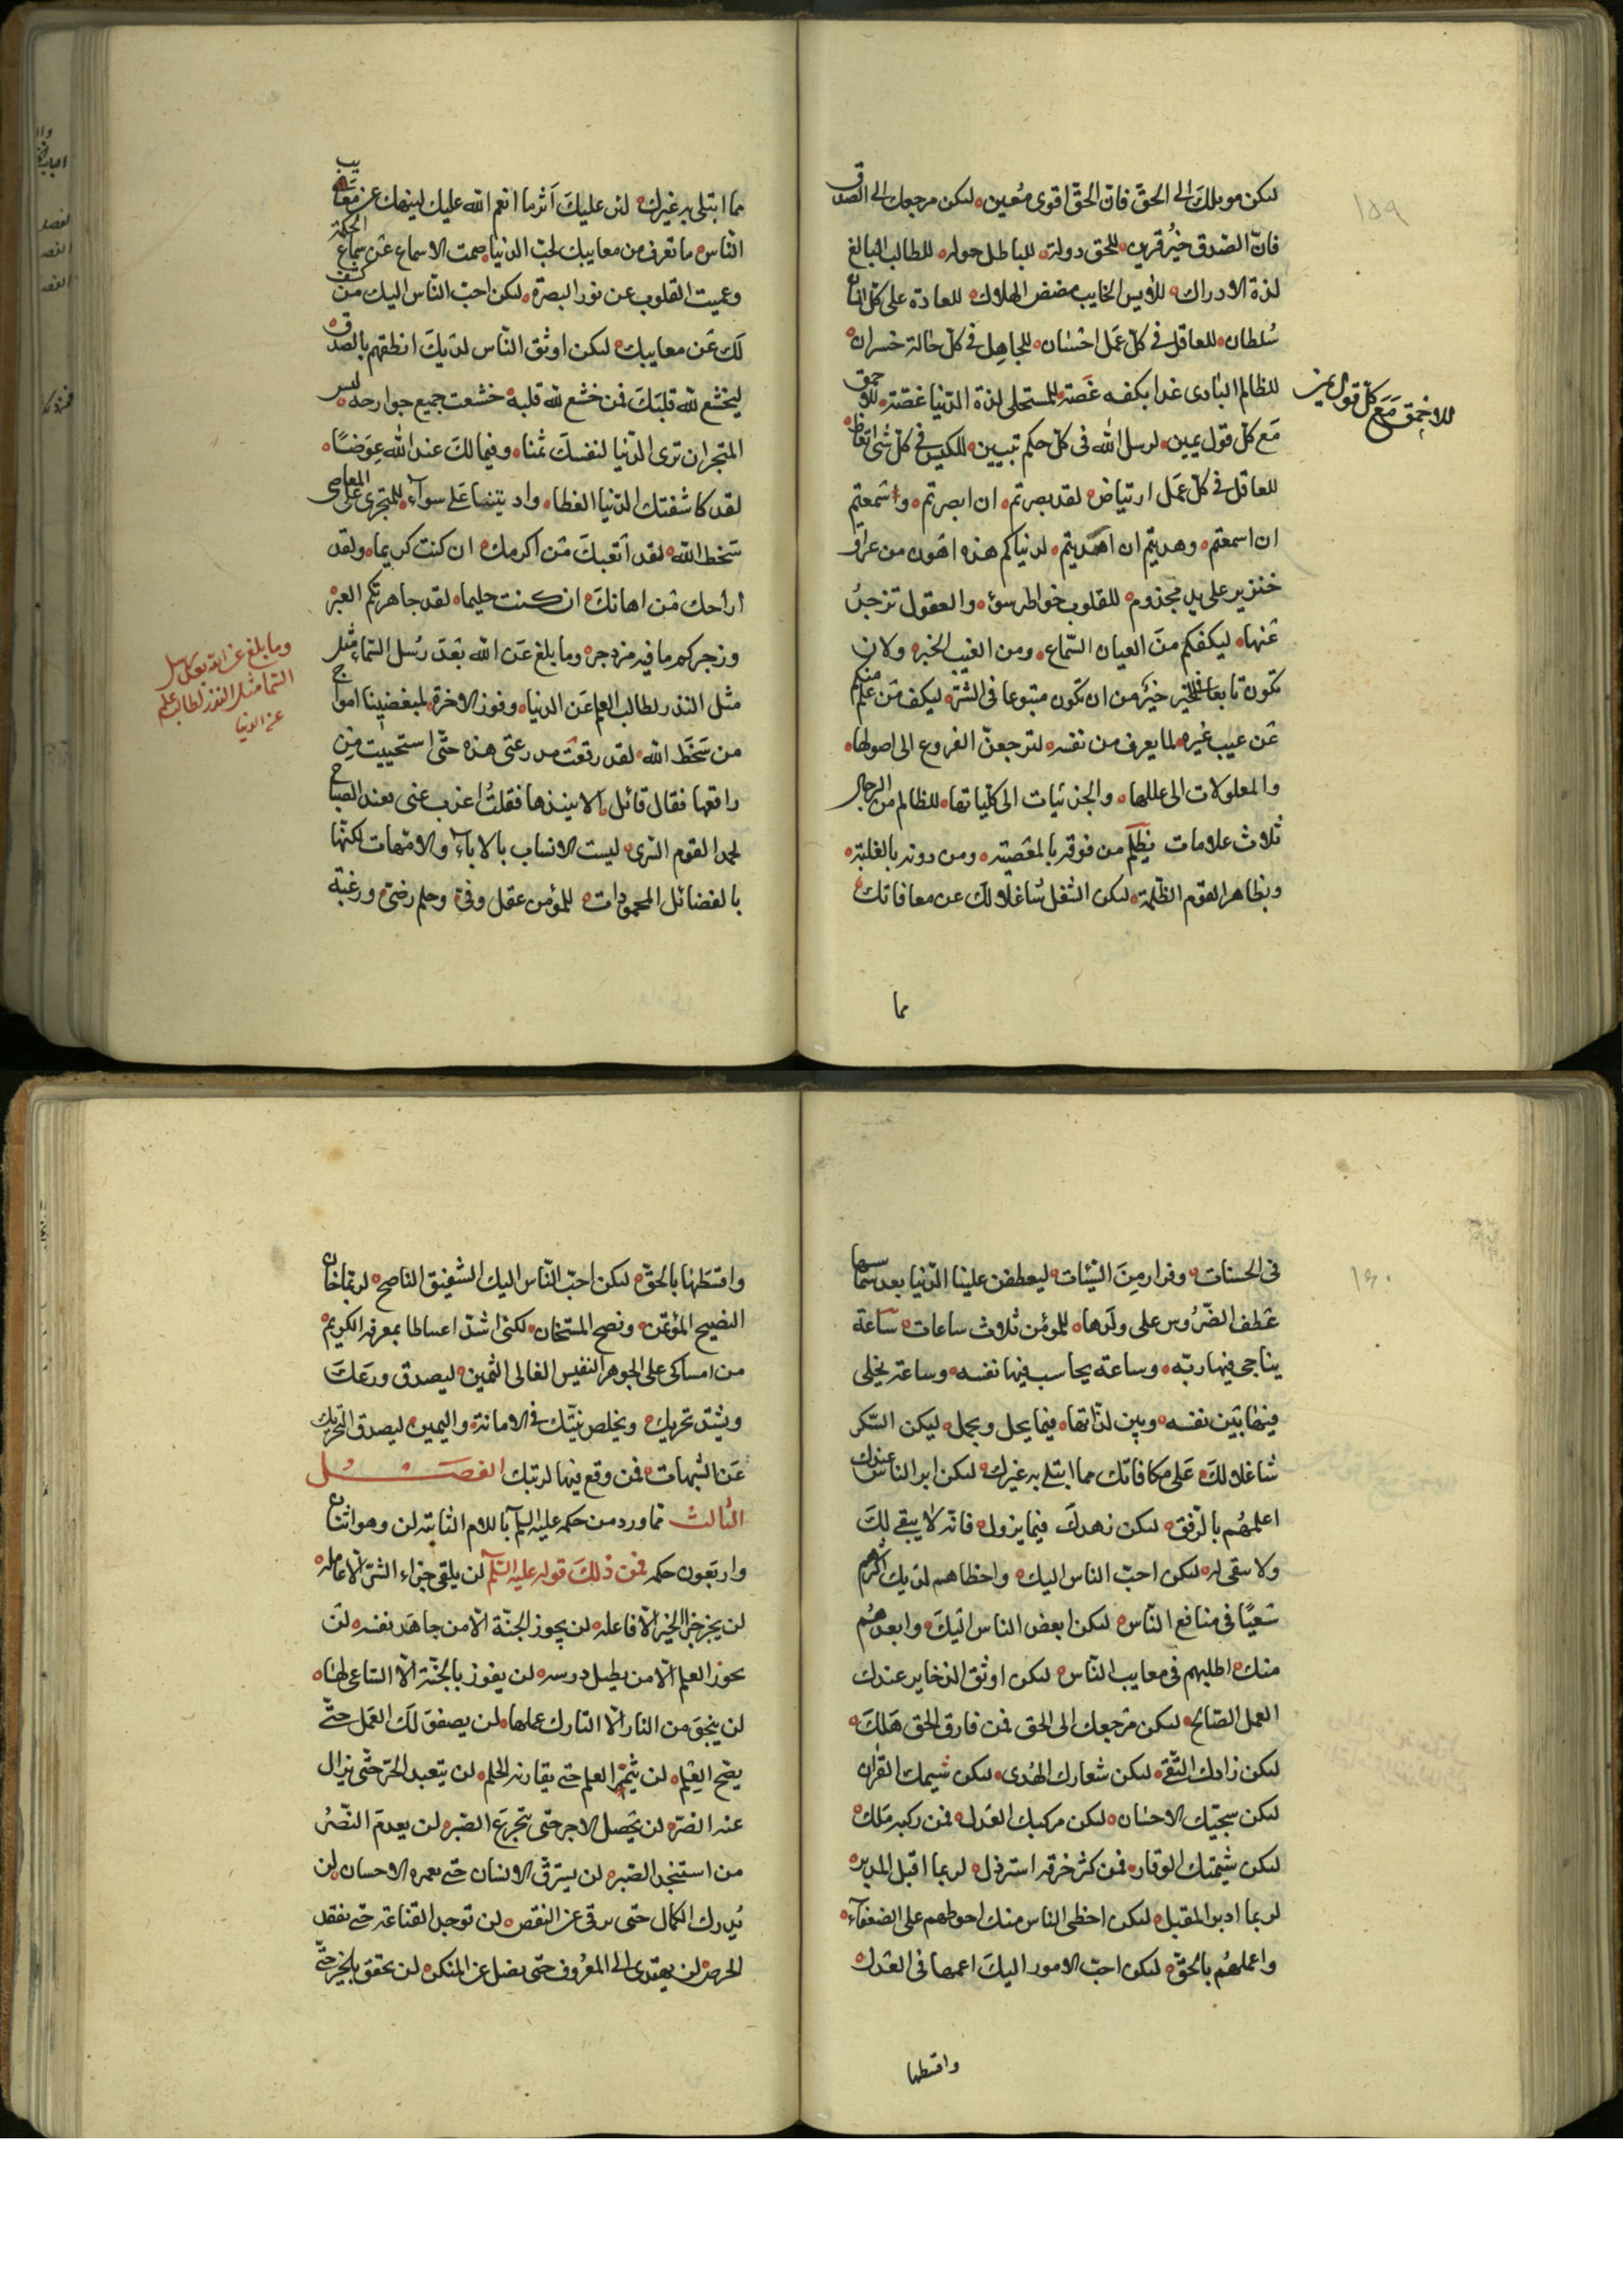 ١٥٩
ليكن موئلك الى الحقّ فانّ الحقّ اقوى مُعين ليكن مرجعك الى الصدق
فانّ الصدق خيرُ قرين للحق دولة للباطل جوله للطالب البالغ
لذة الادراك للآيس الخايب مضض الهلاك للعادة على كلّ انسان
سُلطان للعاقل في كلّ عَمَل احسان للجاهل في كلّ حالة خسران
للظالم البادى غدا بكفه عَضّة للمستحلى لذة الدّنيا غصّة للاحمق
للاحمق مَعَ كلّ قول يمين
مَع كلّ قول يمين لرسل الله في كلّ حكم تبيين للكيس في كلّ شئ اتعاظ
للعاقل في كلّ عمَل ارتياض لقد بصرتم ان ابصرتم واسمعتم
ان اسمعتم وهديتم ان اهتديتم لدنياكم هذه اهون من عراق
خنزير على يد مجذوم للقلوب خواطر سوء والعقول تزجرُ
عنها ليكفكم منَ العيان السّماع ومن الغيب الخبر ولان
تكون تابعا في الخير خيرٌ من ان تكون متبوعا في الشرّ ليكف مَن علم منكم
عَن عيب غيره لما يعرف من نفسه لترجعنّ الفروع الى اصولها
والمعلولات الى عللها والجزئيات الى كلّياتها للظالم من الرجال
ثلاث علامات يظلم من فوقه بالمعصية ومن دونه بالغلبة
ويظاهر القوم الظّلمة ليكن الشغل شاغلا لك عن معافاتك
مما
مما ابتلى به غيرك لئن عليكَ اَثر ما انعم الله عليك لينهك عن معايب
النّاس ما تعرف من معايبك لحبّ الدنيا صمت الاسماع عن سماع الحكمة
وعميت القلوب عن نور البصيرة ليكن احبّ النّاس اليك من كشف
لكَ عَن معايبك ليكن اوثق النّاس لديكَ انطقهم بالصدق
ليخشع لله قلبَك فمن خشع لله قلبه خشعت جميع جوارحه لبئس
المتجر ان ترى الدّنيا لنفسك ثمنا وفيما لكَ عند الله عِوَضًا
لقد كاشفتك الدّنيا الغطا واذنتها عَلى سواء للمتجرى على المعاصى
سخط الله لقد اتعبكَ مَن اكرمك ان كنت كريما ولقد
اراحك مَن اهانكَ ان كنت حليما لقد جاهرتكم العبر
وزجركم ما فيه مزدجر وما بلغ عَن الله بَعدَ رُسل السّماء مثل
مثل النذر لطالب العلم عَن الدنيا وفوز الاخرة لمبغضينا امواج
وما بلغ عن الله بعد رسل
السّما مثل النذر لطالب علم
عن الدنيا
من سَخَط الله لقد رقعت مدرعتى هذه حتّى استحييت مِن
راقعها فقال قائل الا تنبذها فقلتُ اعزب عنى فعند الصباح
يحمد القوم السّرى ليست الانساب بالاباء والامّهات لكنّها
بالفضائل المحمودات للمؤمن عقل وفىّ وحلم رضىّ ورغبة
١٦٠
في الحسنات وفرار مِنَ السّيئات ليعطفن علينا الدّنيا بعد شماسها
عَطف الضّرُوس على ولدَها للمؤمن ثلاث ساعات سَاعة
يناجى فيها ربّه وساعة يحاسب فيها نفسه وساعة يخلى
فيها بَين نفسه وبين لذّاتها فيما يحل ويجمل ليكن الشّكر
شاغلا لكَ عَلى مكافاتك مما ابتلى به غيرك ليكن ابر الناس عندك
اعملهُم بالرّفق ليكن زهدكَ فيما يزول فانّه لا يبقى لكَ
ولا تبقى له ليكن احبّ الناس اليك واحظاهم لديك اكثرهم
سَعيًا فى منافع النّاس ليكن ابغض الناس اليكَ وابعدهُم
منك اطلبهم فى معايب النّاس ليكن اوثق الذخاير عندك
العمل الصّالح ليكن مَرجعك الى الحق فمن فارق الحق هَلَكَ
ليكن زادك التّقى ليكن شعارك الهُدى ليكن سَميرك القرآن
ليكن سجيّتك الاحسَان ليكن مركبك العَدل فمن ركبه مَلك
ليكن شيمتك الوقار فمن كثر خرقه استرذل لربما اقبل المدبر
لربما ادبر المقبل ليكن احظى الناس منك احوطهم على الضعفاء
واعملهُم بالحقّ ليكن احبّ الامور اليكَ اعمها فى العَدل
واقسطها
واقسَطها بالحقّ ليكن احبّ النّاس اليك الشفيق النّاصح لربما خان
النصيح المؤتمن ونصح المستخان لكنى اشدّ اغتباطا بمعرفة الكريم
من امساكى على الجوهر النفيس الغالى الثمين ليصدق ورَعكَ
ويشتد تحريك ويخلص نيّتك فى الامانة واليمين ليصدق تحريك
عَن الشبهات فمن وقع فيها ارتبك الفصَــل
الثالث ممّا ورد من حكمه عليه السلم باللام الثابته لن وهو اثنان
واربَعون حكمه فمن ذلكَ قوله عليه السّلم لن يلقى جزاء الشرّ الّا عامله
لن يجز جزا الخير الّا فاعله لن يحوز الجنّة الّا من جاهَد نفسه لن
يحوز العلم الّا من يطيل درسه لن يفوز بالجَنّة الّا السّاعى لها
لن ينجوَ من النار الّا التارك عملها لن يصفوَ لكَ العَمل حتّى
يصّح العِلم لن يثمرَ العلم حتى يقارنه الحلم لن يتعبد الحرّ حتّى يزال
عنه الضرّ لن يَحصل الاجر حتّى يتجرعَ الصّبر لن يعدمَ النّصْر
من استنجد الصّبر لن يسترقّ الانسان حتى يغمره الاحسان لن
يُدرك الكمال حتى يرقى عن النقص لن توجد القناعة حتى يفقد
الحرص لن يهتدى الى المعرُوف حتى يضل عن المنكر لن يتحقق بالخير حتّى